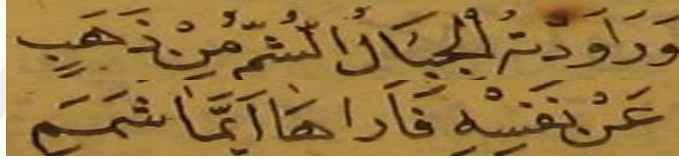 وَرَاوَدَتْهُ الْجِبَالُ الشُّمُّ مِنْ ذَهَبٍ
عَنْ نَفْسِهِ فَأَرَاهَا أَيَّمَا شَمَمِ